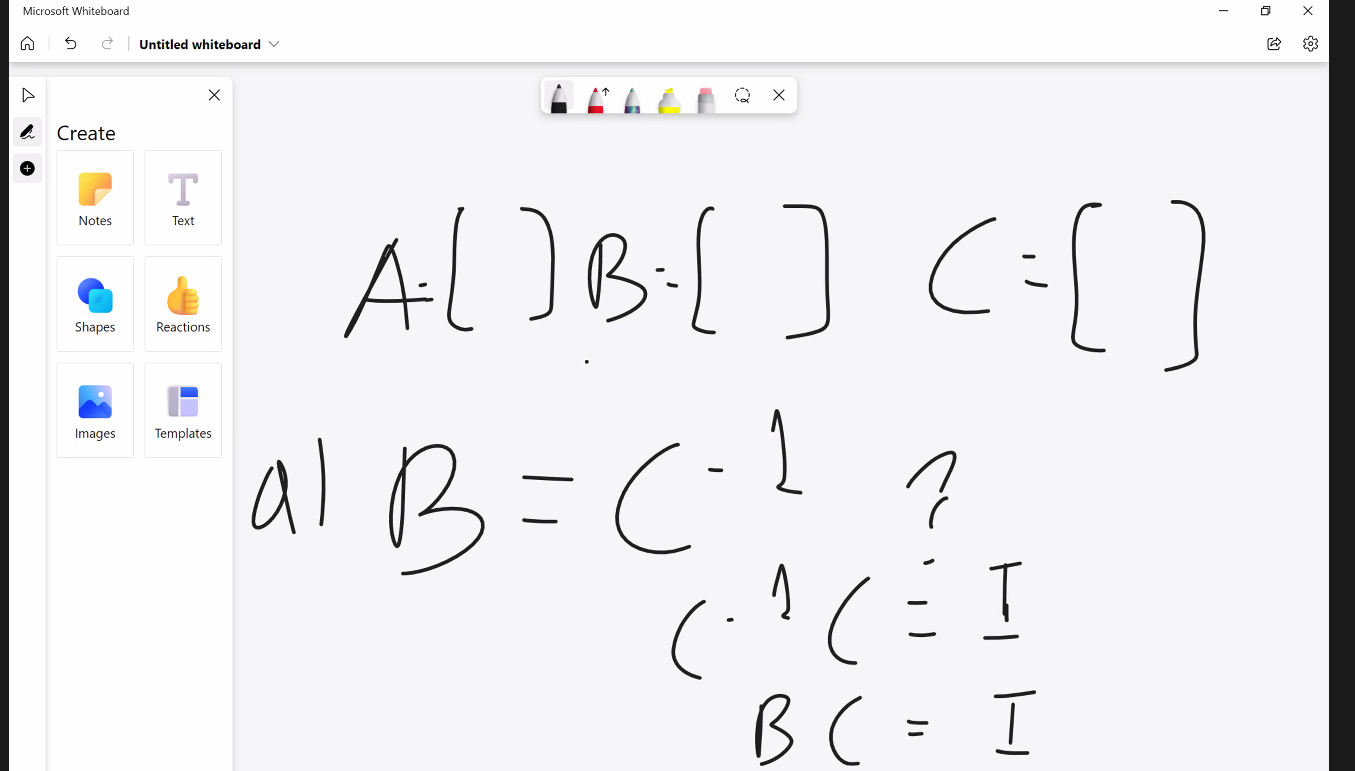 Microsoft Whiteboard
Untitled whiteboard
Create
Notes
Text
Shapes
Reactions
Images
Templates
A=[ ] B=[ ] C=[ ]
a) B = C-1 ?
C-1 C = I
B C = I